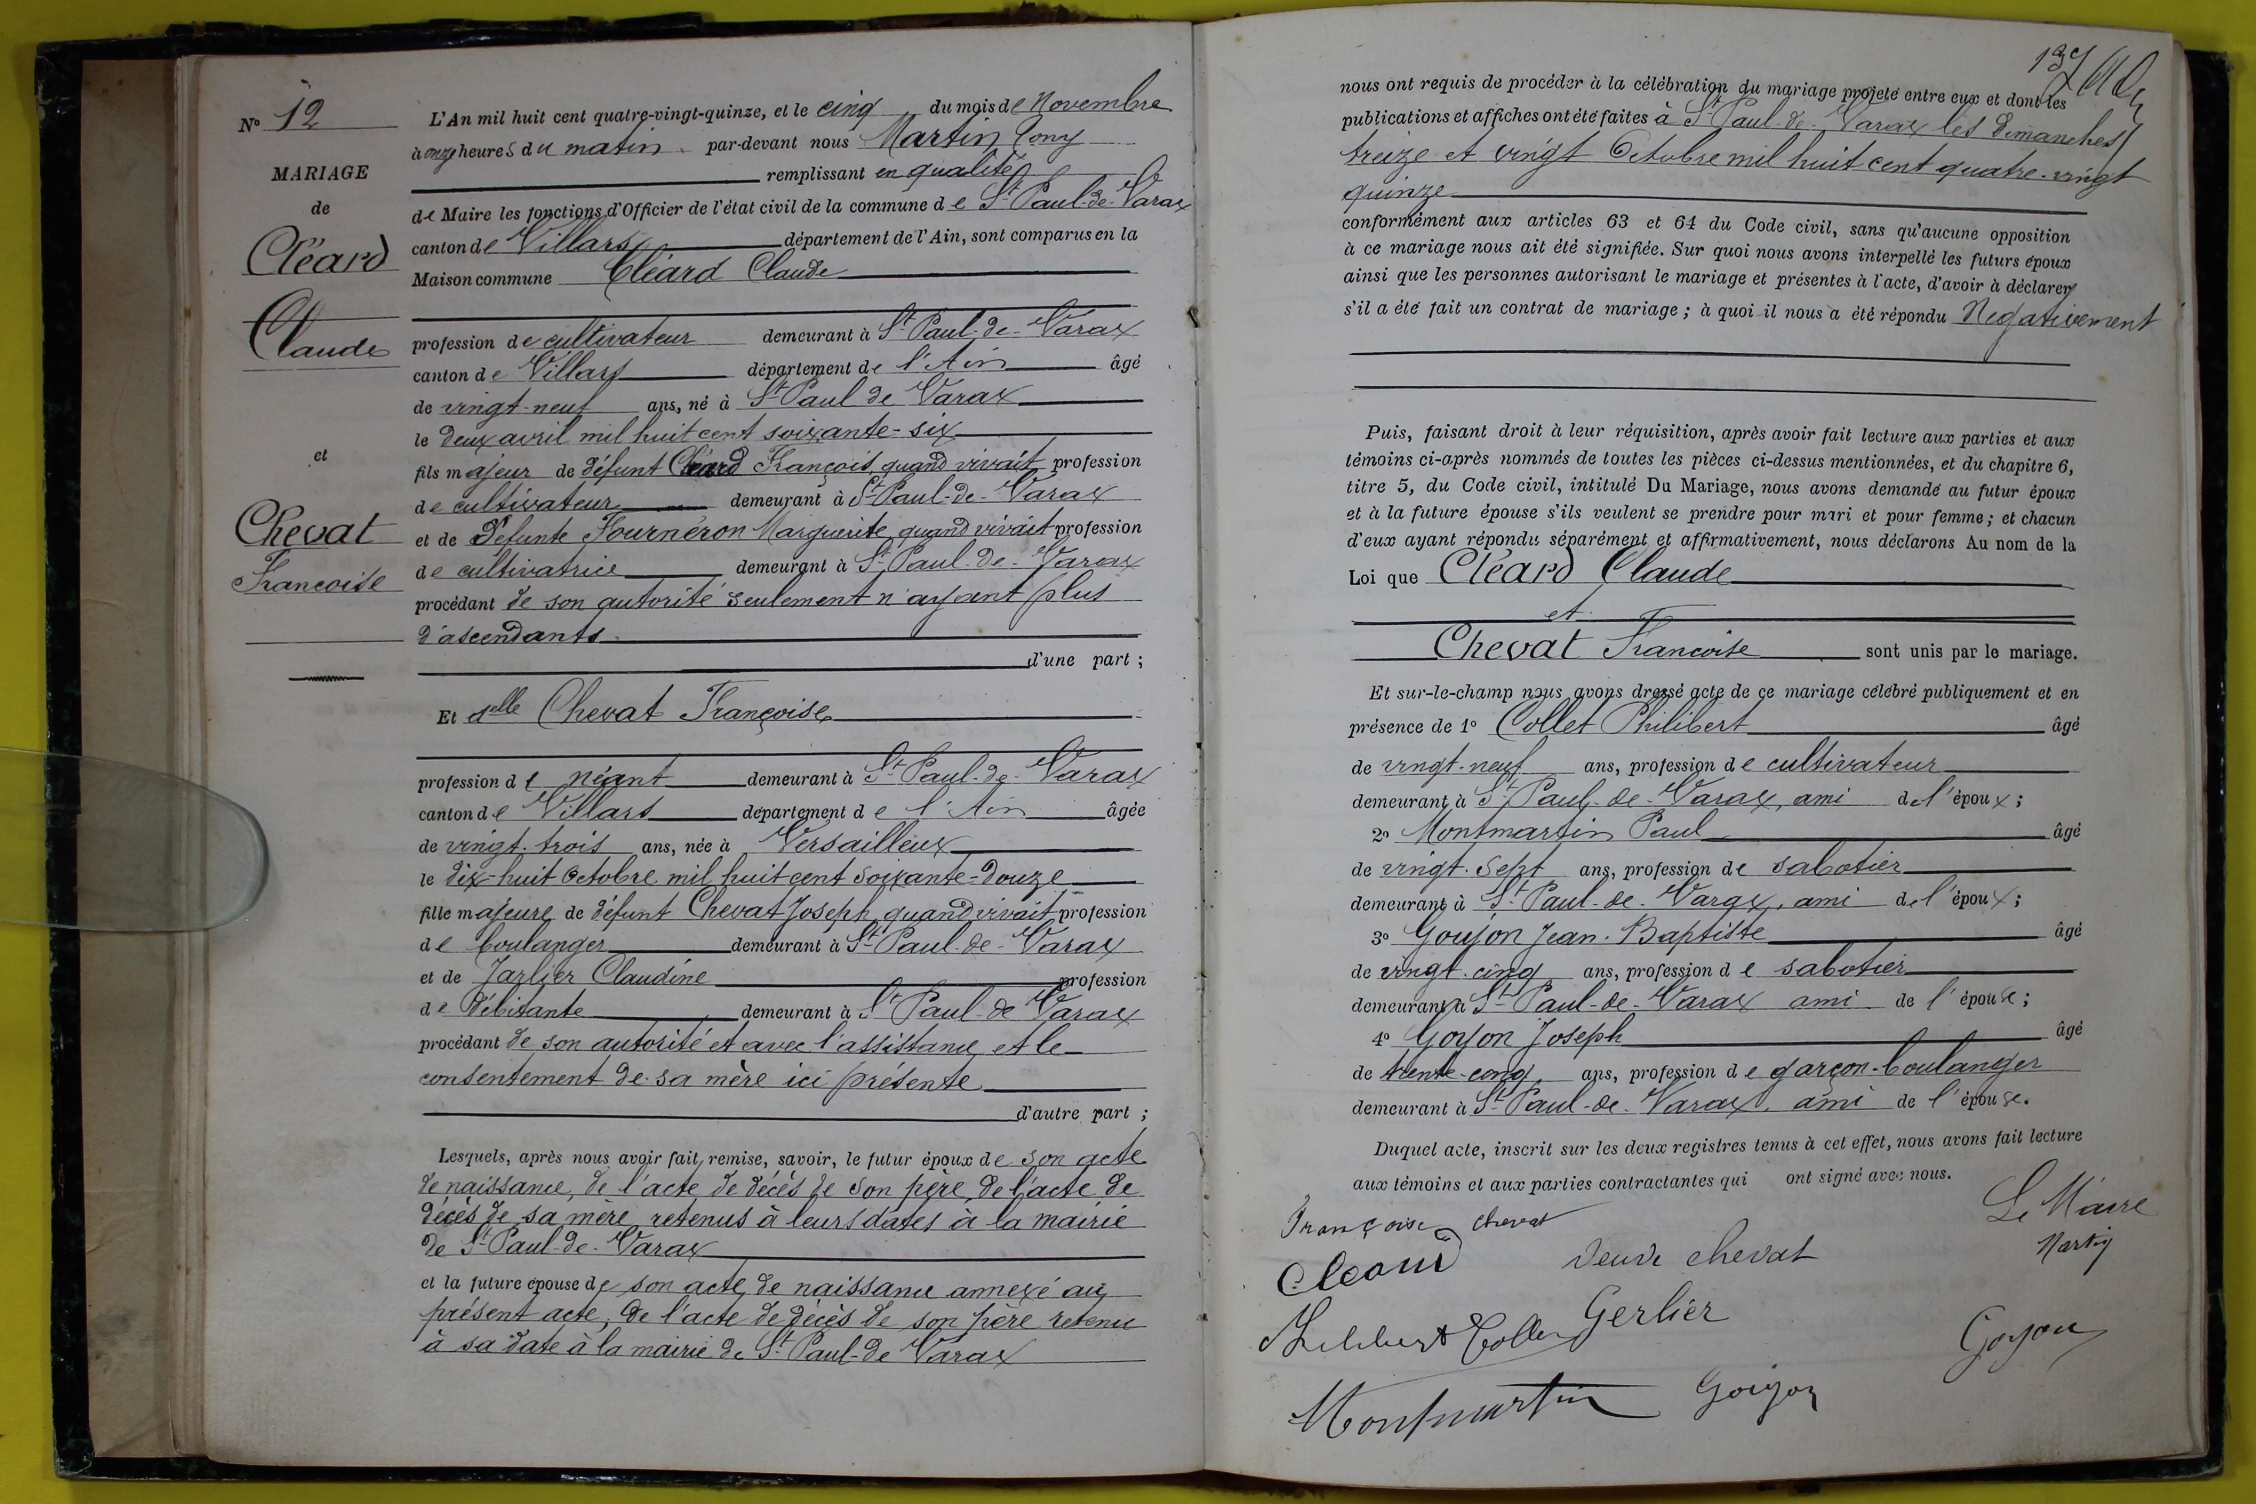 No 12
MARIAGE
de
Cléard
Claude
et
Chevat
Francoise
L'An mil huit cent quatre-vingt-quinze, et le cinq du mois de Novembre
à onze heures du matin par-devant nous Martin Tony
remplissant en qualité
de Maire les fonctions d'Officier de l'état civil de la commune de St Paul-de-Varax
canton de Villars département de l'Ain, sont comparus en la
Maison commune Cléard Claude
profession de cultivateur demeurant à St Paul-de-Varax
canton de Villars département de l'Ain âgé
de vingt-neuf ans, né à St Paul de Varax
le deux avril mil huit cent soixante-six
fils majeur de défunt Cléard François, quand vivait profession
de cultivateur demeurant à St Paul-de-Varax
et de défunte Fournéron Marguerite, quand vivait profession
de cultivatrice demeurant à St Paul-de-Varax
procédant de son autorité seulement n'ayant plus
d'ascendants.
d'une part ;
Et delle Chevat Françoise
profession de néant demeurant à St Paul-de-Varax
canton de Villars département de l'Ain âgée
de vingt-trois ans, née à Versailleux
le dix-huit Octobre mil huit cent soixante-douze
fille majeure de défunt Chevat Joseph, quand vivait profession
de boulanger demeurant à St Paul-de-Varax
et de Jarlier Claudine profession
de débitante demeurant à St Paul-de Varax
procédant de son autorité et avec l'assistance et le
consentement de sa mère ici présente
d'autre part ;
Lesquels, après nous avoir fait remise, savoir, le futur époux de son acte
de naissance, de l'acte de décès de son père, de l'acte de
décès de sa mère retenus à leurs dates à la mairie
de St Paul-de-Varax
et la future épouse de son acte de naissance annexé au
présent acte, de l'acte de décès de son père retenu
à sa date à la mairie de St Paul-de Varax
137
nous ont requis de procéder à la célébration du mariage projeté entre eux et dont les
publications et affiches ont été faites à St Paul-de-Varax les dimanches
treize et vingt Octobre mil huit cent quatre-vingt
quinze
conformément aux articles 63 et 64 du Code civil, sans qu'aucune opposition
à ce mariage nous ait été signifiée. Sur quoi nous avons interpellé les futurs époux
ainsi que les personnes autorisant le mariage et présentes à l'acte, d'avoir à déclarer
s'il a été fait un contrat de mariage ; à quoi il nous a été répondu Négativement
Puis, faisant droit à leur réquisition, après avoir fait lecture aux parties et aux
témoins ci-après nommés de toutes les pièces ci-dessus mentionnées, et du chapitre 6,
titre 5, du Code civil, intitulé Du Mariage, nous avons demandé au futur époux
et à la future épouse s'ils veulent se prendre pour mari et pour femme ; et chacun
d'eux ayant répondu séparément et affirmativement, nous déclarons Au nom de la
Loi que Cléard Claude
et
Chevat Francoise sont unis par le mariage.
Et sur-le-champ nous avons dressé acte de ce mariage célébré publiquement et en
présence de 1o Collet Philibert âgé
de vingt-neuf ans, profession de cultivateur
demeurant à St Paul-de-Varax, ami de l'époux ;
2o Montmartin Paul âgé
de vingt-sept ans, profession de sabotier
demeurant à St Paul-de-Varax, ami de l'époux ;
3o Goujon Jean-Baptiste âgé
de vingt-cinq ans, profession de sabotier
demeurant à St Paul-de-Varax ami de l'épouse ;
4o Goyon Joseph âgé
de trente-cinq ans, profession de garçon-boulanger
demeurant à St Paul-de-Varax, ami de l'épouse.
Duquel acte, inscrit sur les deux registres tenus à cet effet, nous avons fait lecture
aux témoins et aux parties contractantes qui ont signé avec nous.
Françoise chevat
Le Maire
Cleard
veuve chevat
Martin
Philibert Collet
Gerlier
Goyon
Montmartin
Goujon